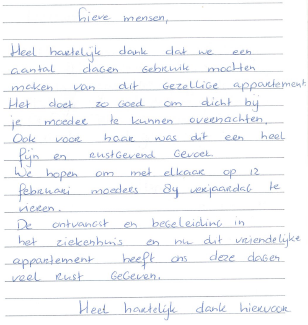 Lieve mensen,
Heel hartelijk dank dat we een
aantal dagen gebruik mochten
maken van dit gezellige appartement
Het doet zo goed om dicht bij
je moeder te kunnen overnachten,
Ook voor haar was dit een heel
fijn en rustgevend gevoel
We hopen om met elkaar op 12
februari moeders 84 verjaardag te
vieren.
De ontvangst en begeleiding in
het ziekenhuis en nu dit vriendelijke
appartement heeft ons deze dagen
veel rust gegeven.
Heel hartelijk dank hiervoor